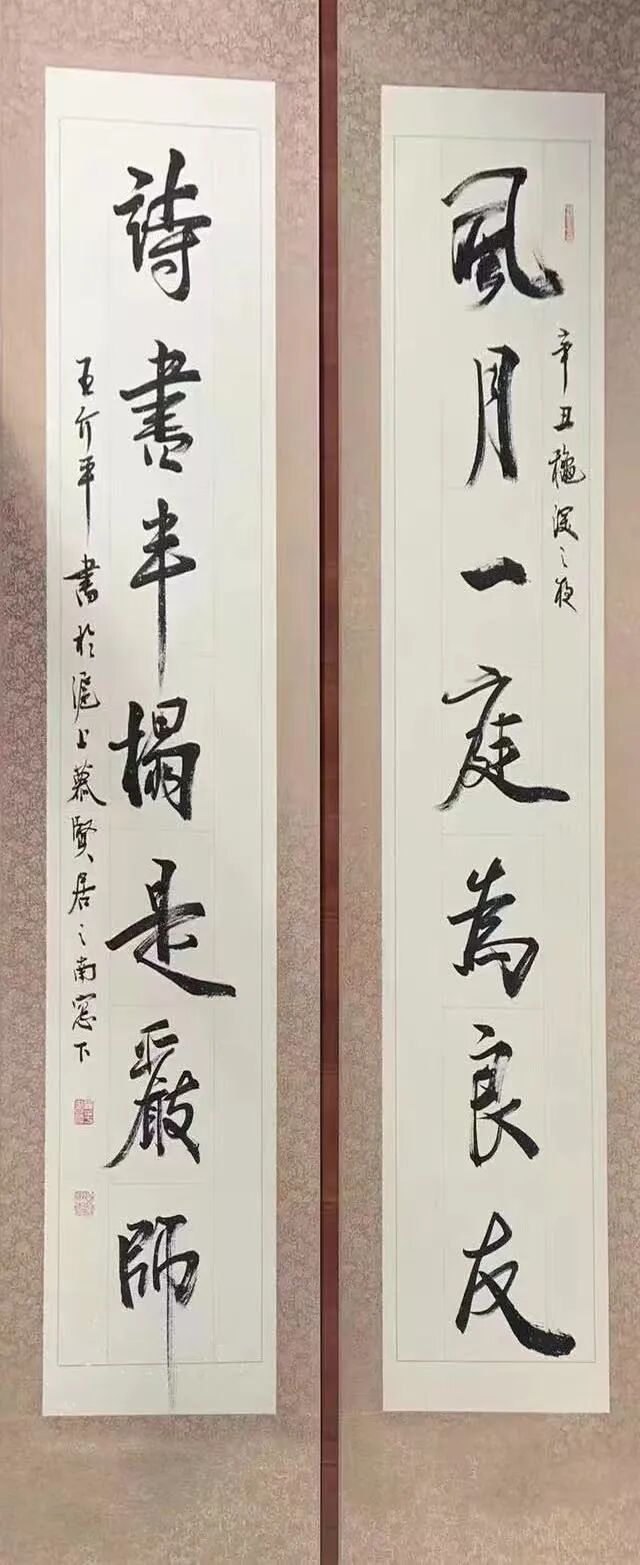 風月一庭為良友
辛丑龝深之夜
詩書半榻是嚴師
王介平書於滬上慕賢居之南窓下